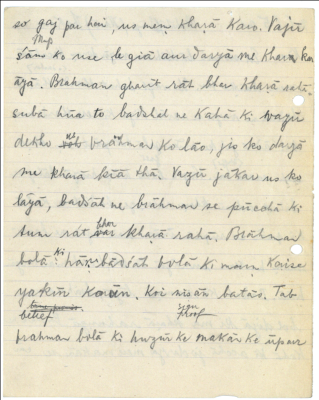 so gaj par hai, us meṃ khaṛā karo. Vajīr
śām ko use le giā aur daryā me khaṛā kar
āyā. Brāhman gharīb rāt bhar khaṛā rahā.
subā hūā to bādśāh ne kahā ki wazīr
dekho us brāhman ko lāo, jis ko daryā
me khaṛā kīā thā. Vazīr jākar us ko
lāyā, bādśāh ne brāhman se pūcchā ki
tum rāt bhar khaṛā rahā. Brāhman
bolā ki hāṃ, bādśāh bolā ki maiṃ kaise
yakīn karūn. Koi niśān batāo. Tab
belief sign proof
brāhman bolā ki huzūr ke makān ke ūpar